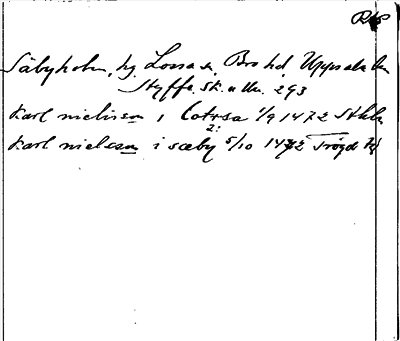 Säbyholm, hg Lossa s, Bro hd, Uppsala län
Styffe. Sk. u Un. 293
Karl nielisson i lotrsa 1/9 1472 Sthlm
2:
Karl nielsson i sæby 5/10 1472 Trögds hd